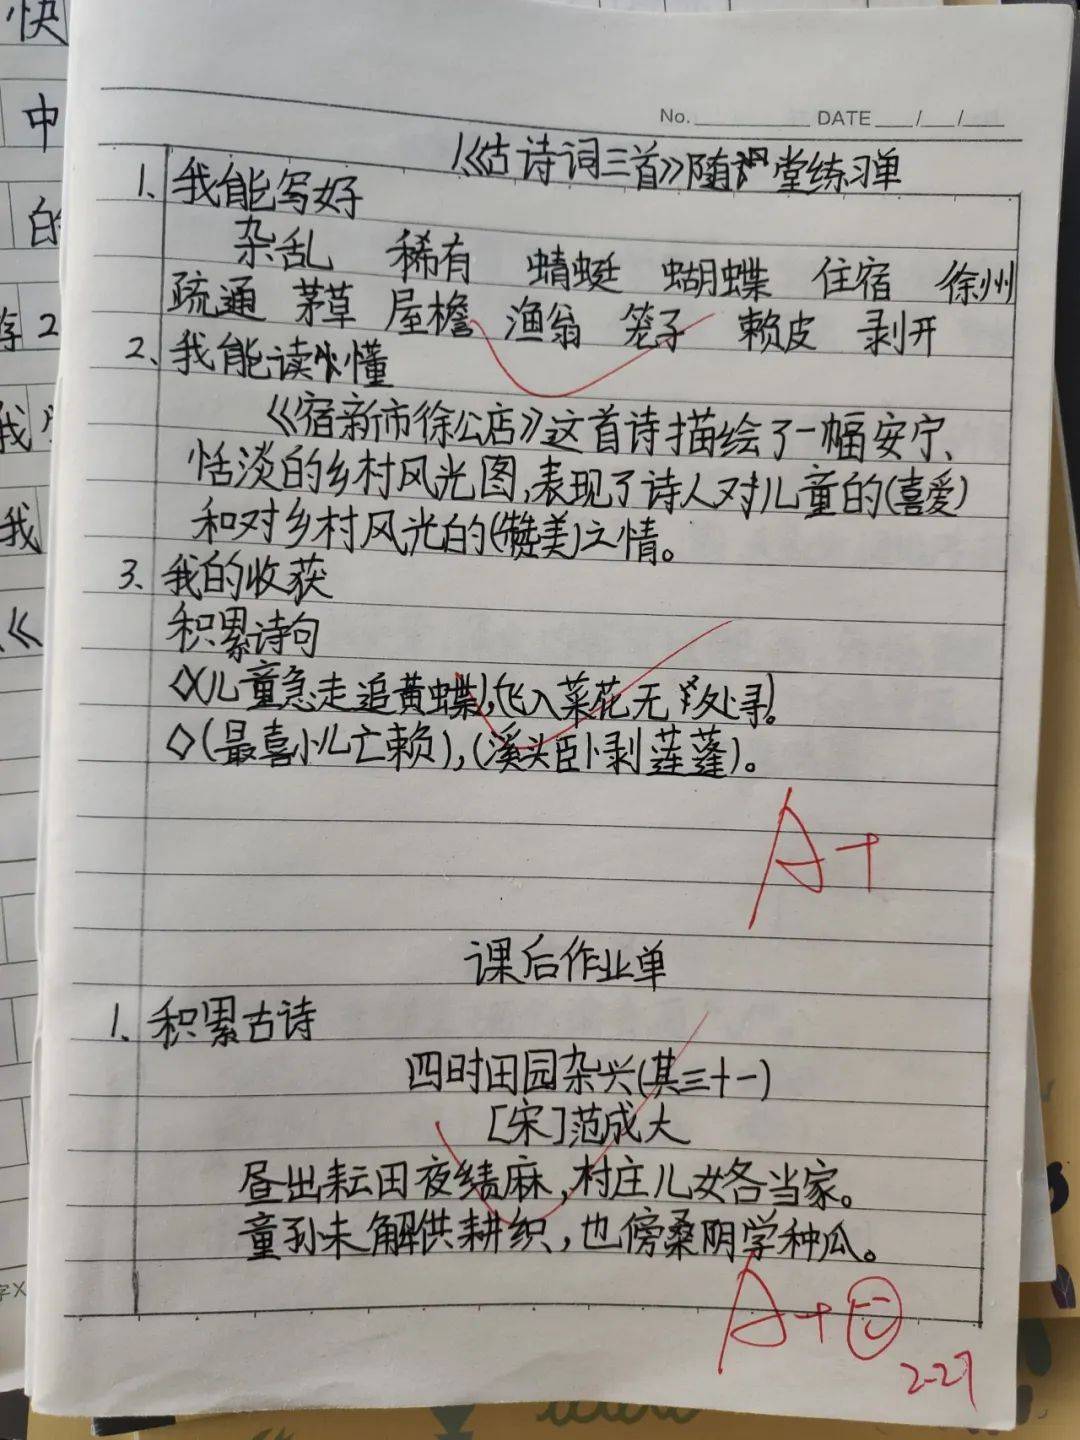 快
中
的
No. DATE / /
1《古诗词三首》随堂练习单
1、我能写好
杂乱 稀有 蜻蜓 蝴蝶 住宿 徐州
疏通 茅草 屋檐 渔翁 笼子 赖皮 剥开
2、我能读懂
《宿新市徐公店》这首诗描绘了一幅安宁、
恬淡的乡村风光图,表现了诗人对儿童的(喜爱)
和对乡村风光的(赞美)之情。
3、我的收获
积累诗句
◇(儿童急走追黄蝶),(飞入菜花无处寻)。
◇(最喜小儿亡赖),(溪头卧剥莲蓬)。
A+
课后作业单
1、积累古诗
四时田园杂兴(其三十一)
[宋]范成大
昼出耘田夜绩麻,村庄儿女各当家。
童孙未解供耕织,也傍桑阴学种瓜。
A+
2-27
2
我
我
《